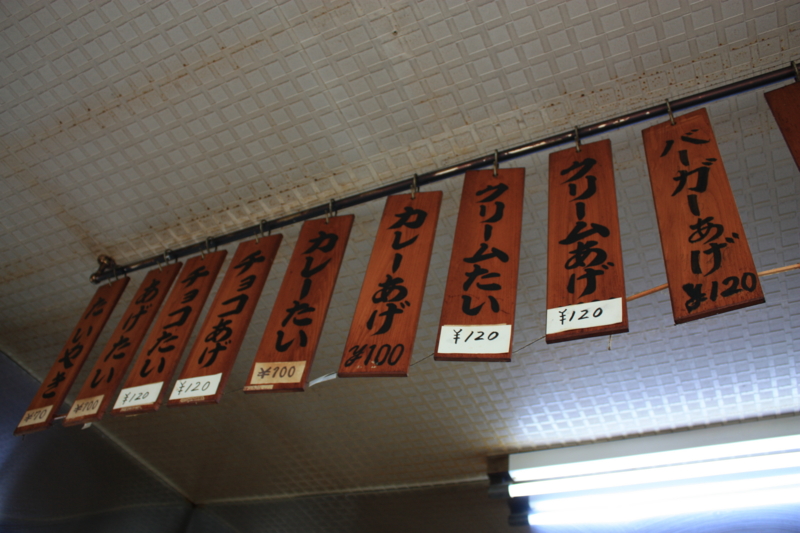 たいやき
¥100
あげたい
¥100
チョコたい
¥120
チョコあげ
¥120
カレーたい
¥100
カレーあげ
¥100
クリームたい
¥120
クリームあげ
¥120
バーガーあげ
¥120